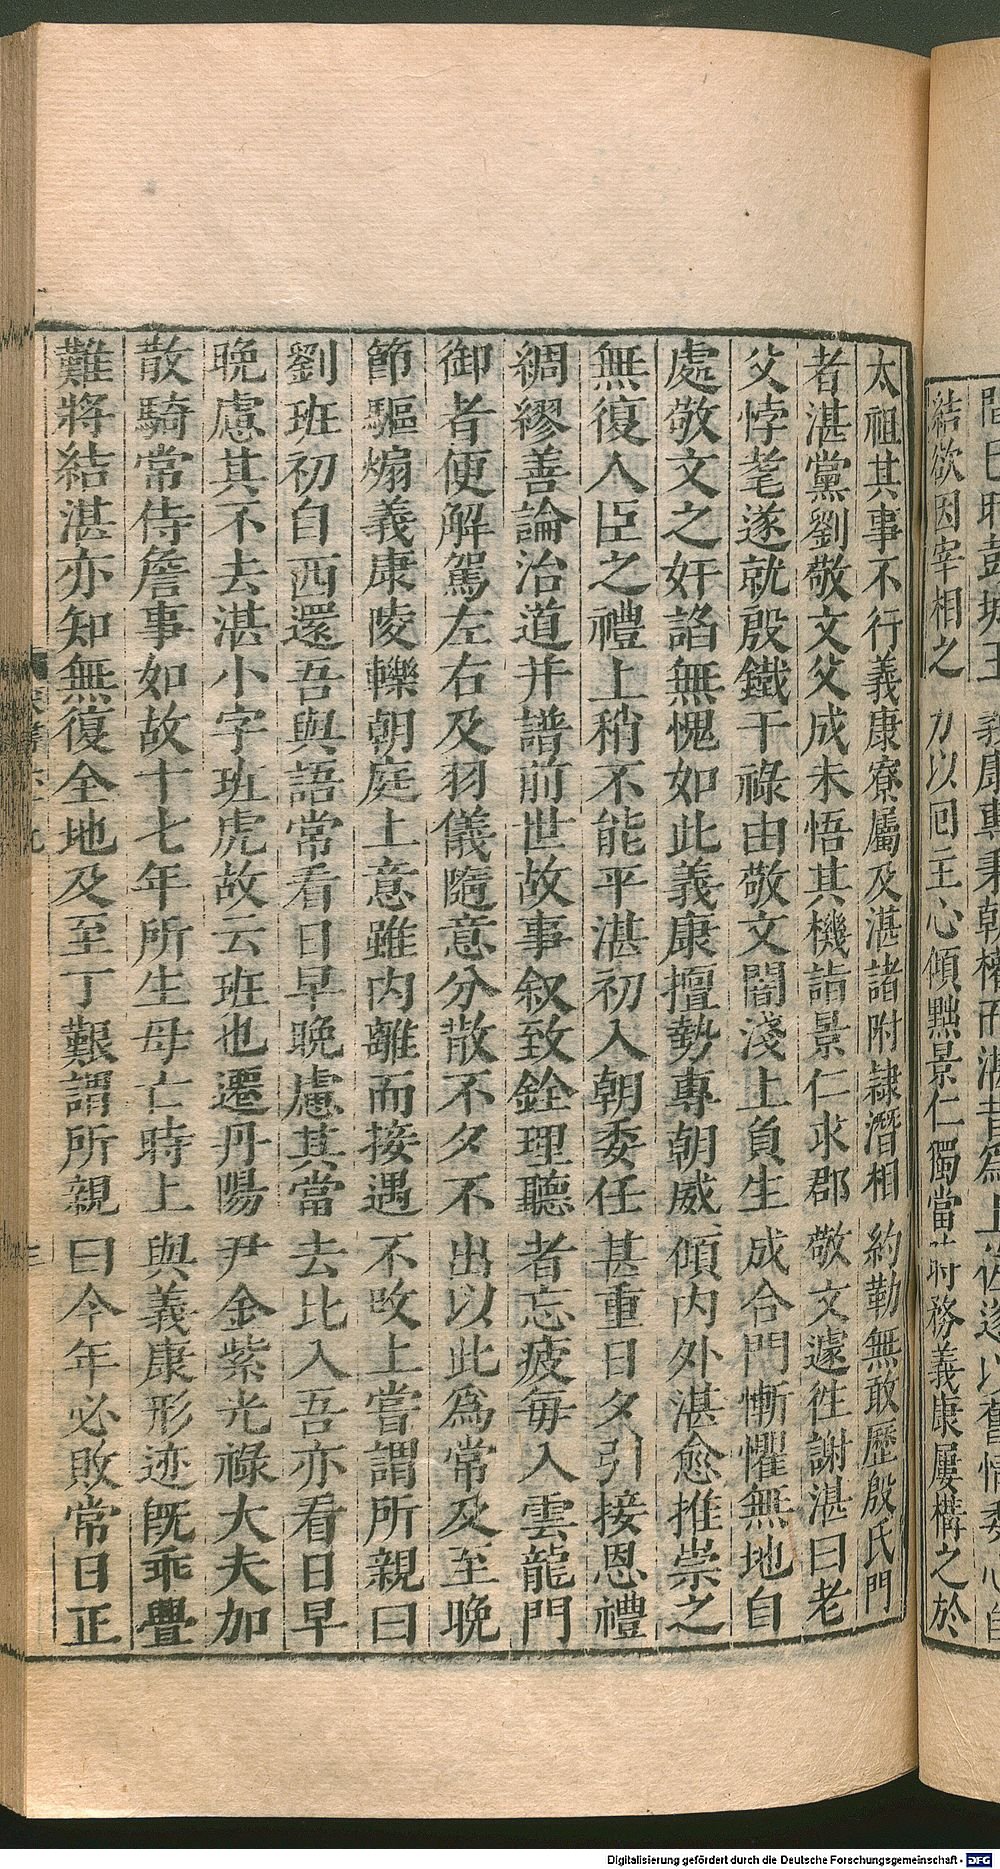 義康專秉朝權而湛昔爲上佐遂以舊情委心自
結欲因宰相之力以回主心傾黜景仁獨當時務義康屢構之於
太祖其事不行義康寮屬及湛諸附隷潛相約勒無敢歷殷氏門
者湛黨劉敬文父成未悟其機詣景仁求郡敬文遽徃謝湛曰老
父悖耄遂就殷鐵干祿由敬文闇淺上負生成合門慚懼無地自
處敬文之奸諂無愧如此義康擅勢專朝威傾内外湛愈推崇之
無復人臣之禮上稍不能平湛初入朝委任甚重日夕引接恩禮
綢繆善論治道并諳前世故事叙致銓理聽者忘疲每入雲龍門
御者便解駕左右及羽儀隨意分散不夕不出以此爲常及至晚
節驅煽義康陵轢朝庭上意雖内離而接遇不攺上嘗謂所親曰
劉班初自西還吾與語常看日早晚慮其當去比入吾亦看日早
晚慮其不去湛小字班虎故云班也遷丹陽尹金紫光祿大夫加
散騎常侍詹事如故十七年所生母亡時上與義康形迹旣乖舋
難將結湛亦知無復全地及至丁艱謂所親曰今年必敗常日正
三
Digitalisierung gefördert durch die Deutsche Forschungsgemeinschaft - DFG